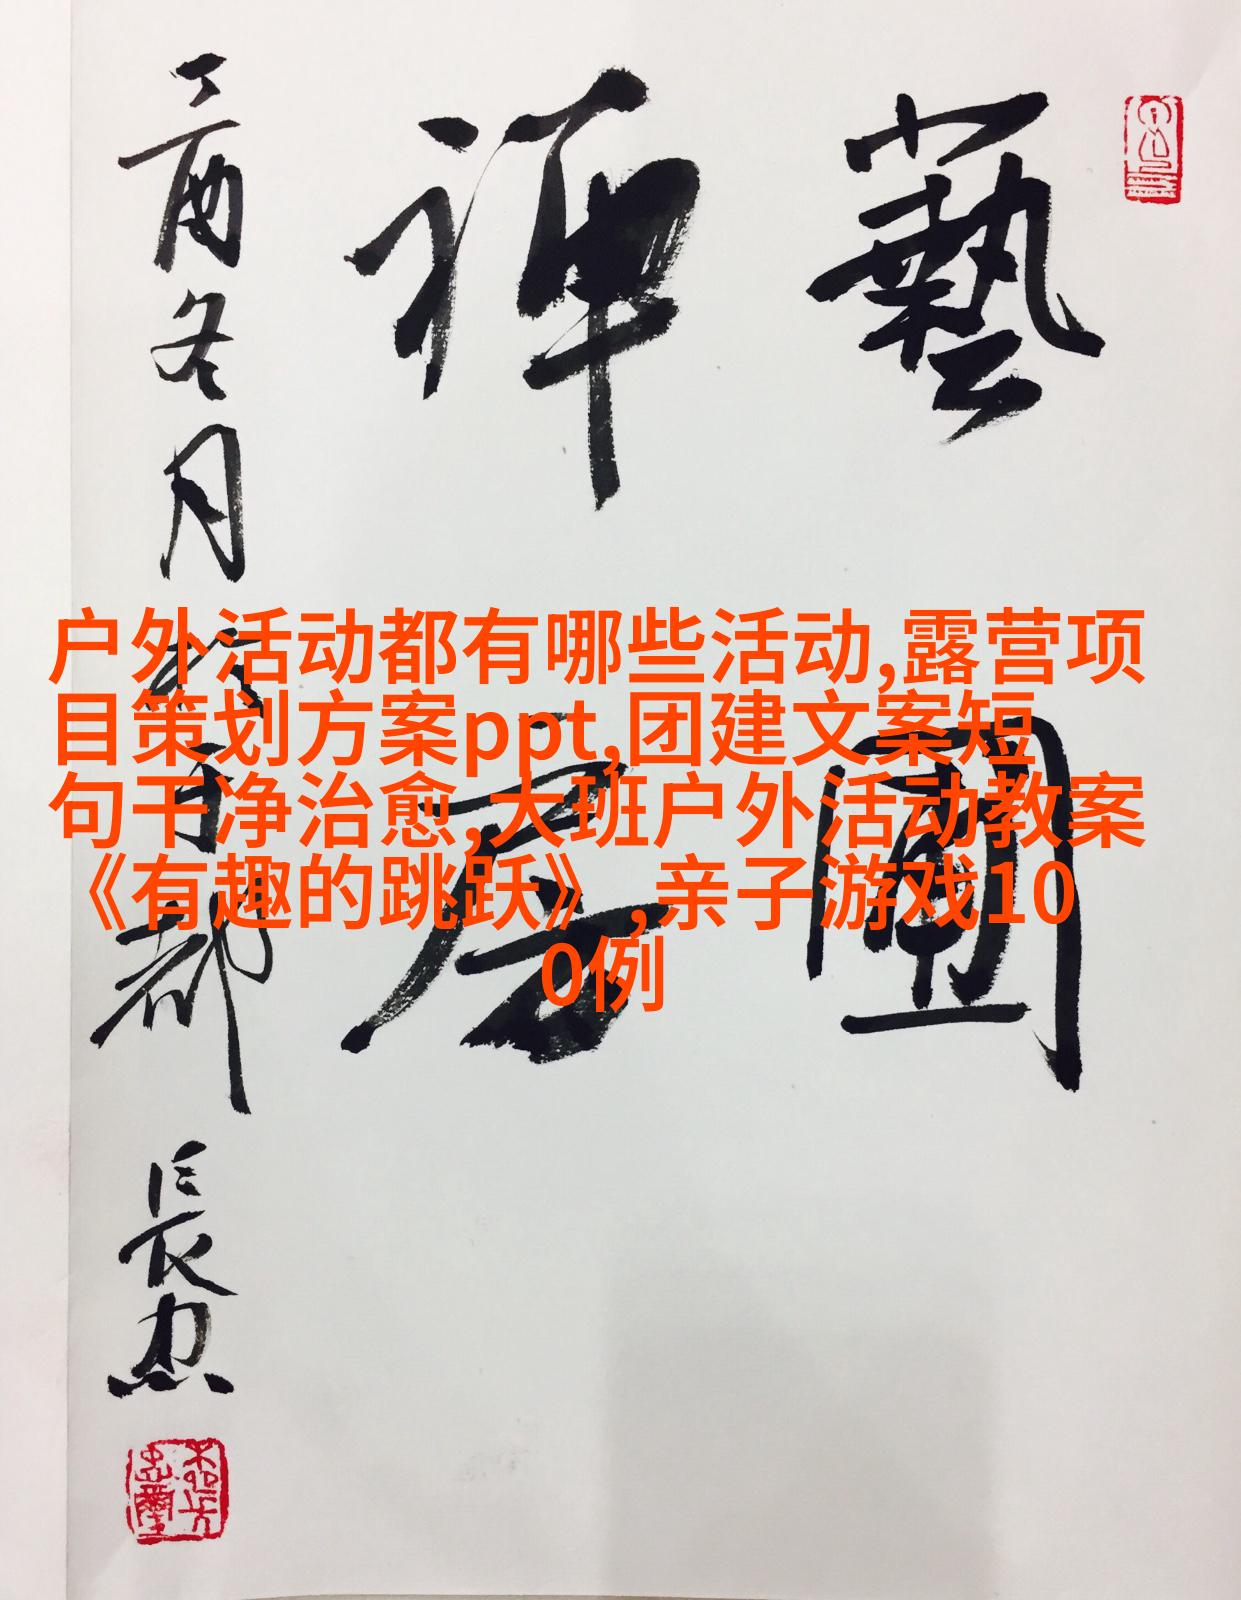 藝圃
禪居
丁酉冬月於
成都
長忠
户外活动都有哪些活动,露营项
目策划方案ppt,团建文案短
句干净治愈,大班户外活动教案
《有趣的跳跃》,亲子游戏10
0例